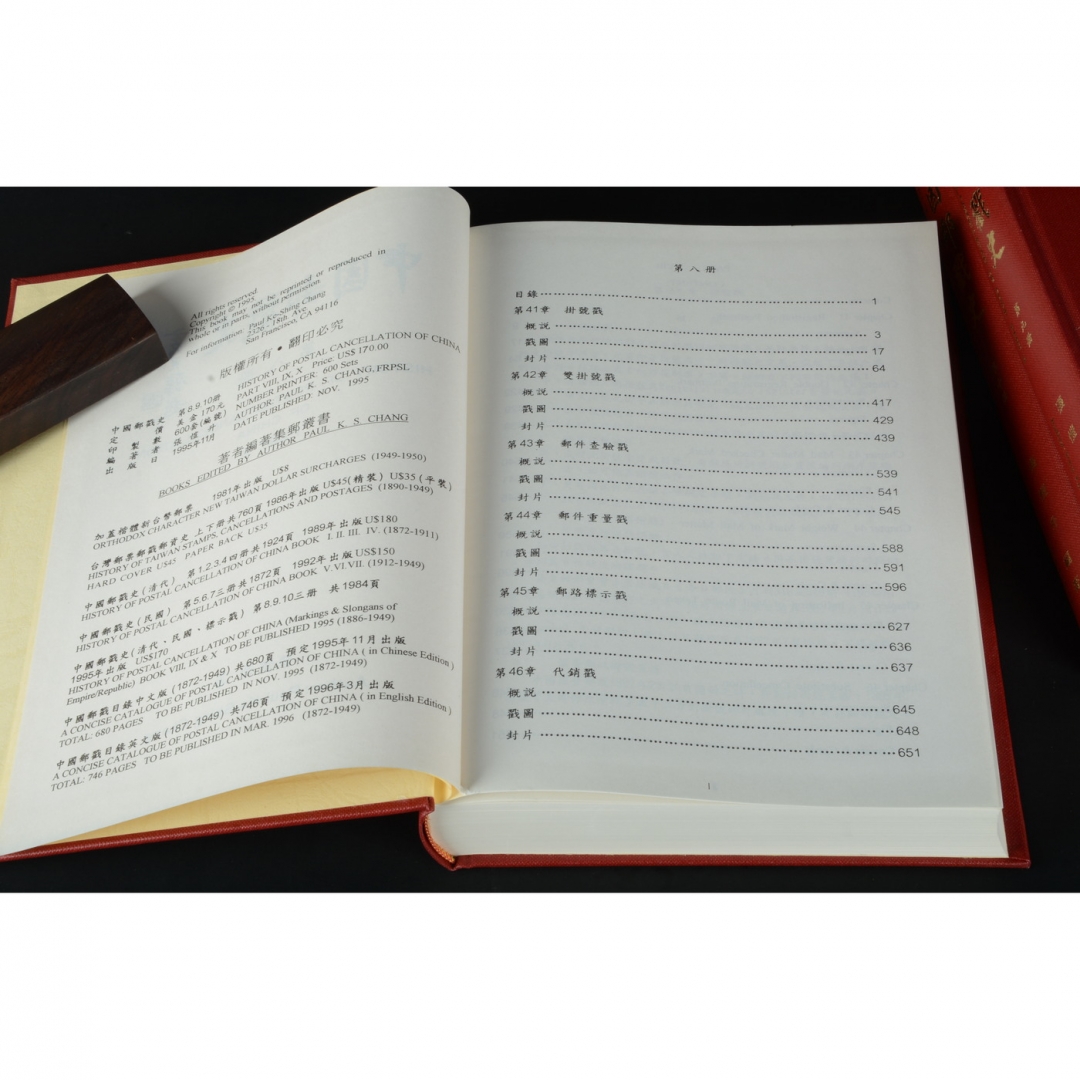 All rights reserved
Copyright © 1995
This book may not be reprinted or reproduced in
whole or in parts, without permission.
For information: Paul Ke-Shing Chang
2326 - 18th. Ave
San Francisco, CA 94116
版權所有 • 翻印必究
HISTORY OF POSTAL CANCELLATION OF CHINA
中國郵戳史 第8.9.10冊 PART VIII, IX, X Price, US$ 170.00
定價 美金170元 NUMBER PRINTER: 600 Sets
印製數 600套(編號) AUTHOR: PAUL K. S. CHANG, FRPSL
編著者 張愷升 DATE PUBLISHED: NOV. 1995
出版日 1995年11月
著者編著集郵叢書
BOOKS EDITED BY AUTHOR PAUL K. S. CHANG
1981年出版 U$8
加蓋楷體新台幣郵票
ORTHODOX CHARACTER NEW TAIWAN DOLLAR SURCHARGES (1949-1950)
台灣郵票郵戳郵資史 上下冊共760頁 1986年出版 U$45(精裝) U$35(平裝)
HISTORY OF TAIWAN STAMPS, CANCELLATIONS AND POSTAGES (1890-1949)
HARD COVER U$45 PAPER BACK U$35
中國郵戳史(清代) 第1.2.3.4四冊共1924頁 1989年出版 U$180
HISTORY OF POSTAL CANCELLATION OF CHINA BOOK I. II. III. IV. (1872-1911)
中國郵戳史(民國) 第5.6.7三冊共1872頁 1992年出版 US$150
HISTORY OF POSTAL CANCELLATION OF CHINA BOOK V.VI.VII. (1912-1949)
中國郵戳史(清代、民國、標示戳) 第8.9.10三冊 共1984頁
1995年出版 US$170
HISTORY OF POSTAL CANCELLATION OF CHINA (Markings & Slongans of
Empire/Republic) BOOK VIII, IX & X TO BE PUBLISHED 1995 (1886-1949)
中國郵戳目錄中文版 (1872-1949) 共680頁 預定1995年11月出版
A CONCISE CATALOGUE OF POSTAL CANCELLATION OF CHINA ( in Chinese Edition )
TOTAL: 680 PAGES TO BE PUBLISHED IN NOV. 1995 (1872-1949)
中國郵戳目錄英文版 (1872-1949) 共746頁 預定1996年3月出版
A CONCISE CATALOGUE OF POSTAL CANCELLATION OF CHINA ( in English Edition )
TOTAL: 746 PAGES TO BE PUBLISHED IN MAR. 1996 (1872-1949)
第八冊
目錄 1
第41章 掛號戳
概說 3
戳圖 17
封片 64
第42章 雙掛號戳
概說 417
戳圖 429
封片 439
第43章 郵件查驗戳
概說 539
戳圖 541
封片 545
第44章 郵件重量戳
概說 588
戳圖 591
封片 596
第45章 郵路標示戳
概說 627
戳圖 636
封片 637
第46章 代銷戳
概說 645
戳圖 648
封片 651
1
戳史